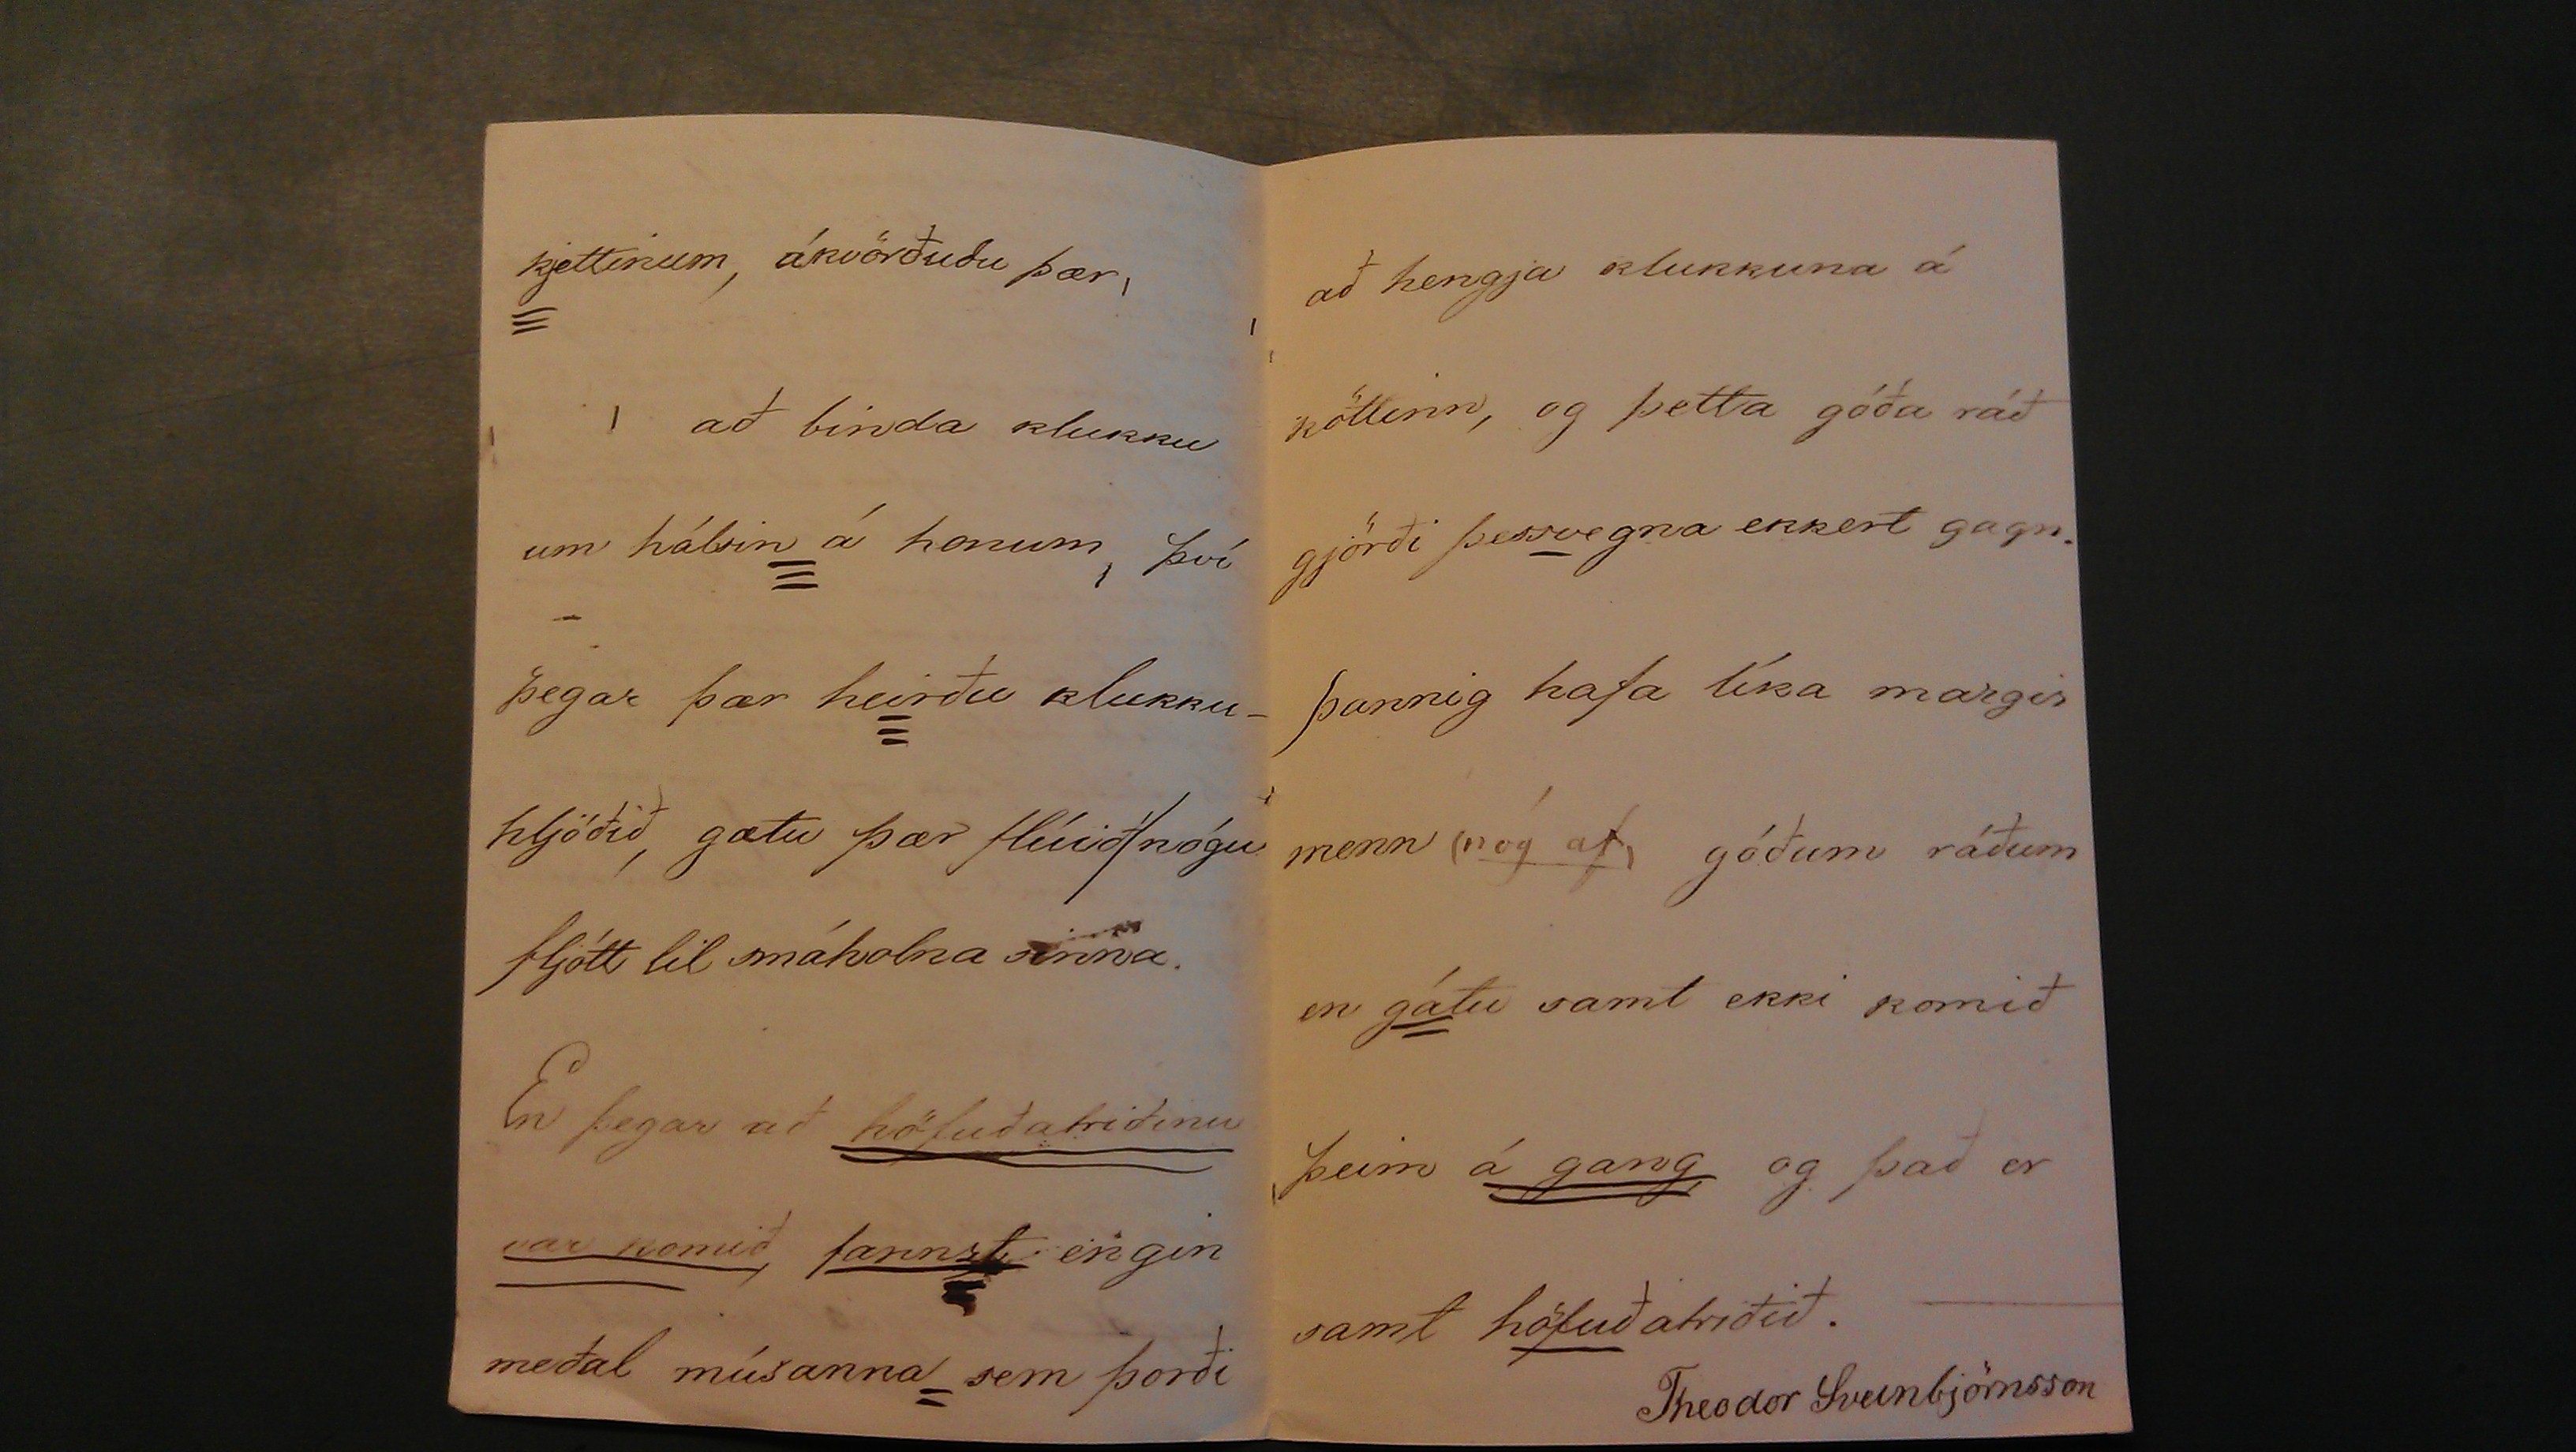 kjettinum, ákvörðuðu þær,
að binda klukku
um hálsin á honum, því
þegar þær heirðu klukku-
hljóðið, gætu þær flúið nógu
fljótt til smáholna sinna.
En þegar að höfuðatriðinu
var komið, fannst engin
meðal músanna sem þorði
að hengja klukkuna á
köttinn, og þetta góða ráð
gjörði þessvegna ekkert gagn.
þannig hafa líka margir
menn (nóg af) góðum ráðum
en gátu samt ekki komið
þeim á gang og það er
samt höfuðatriðið.
Theodor Sveinbjörnsson